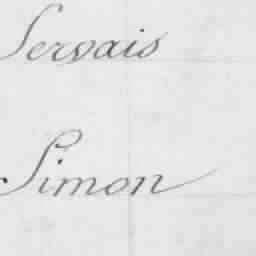 Servais
Simon